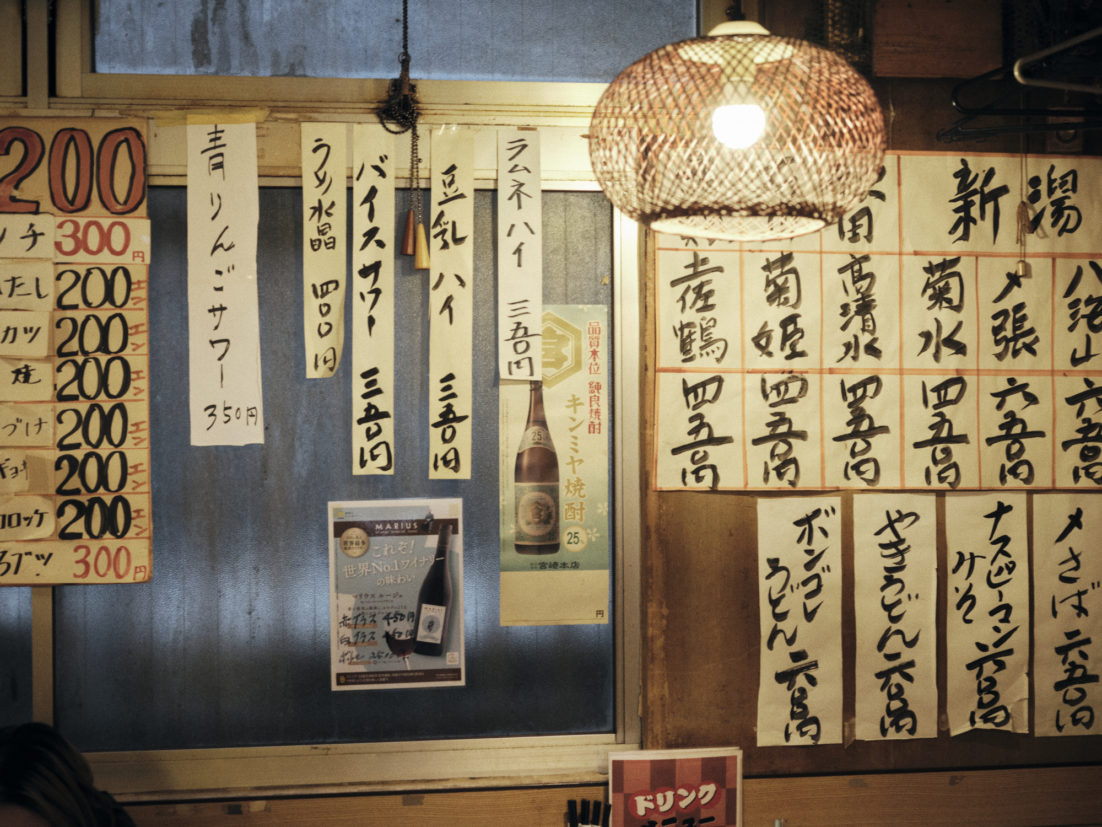 200
ンチ 300円
たし 200
カツ 200
焼 200
づけ 200
200
コロッケ 200
ブツ 300円
青りんごサワー 350円
うめ水晶 四〇〇円
バイスサワー 三五〇円
豆乳ハイ 三五〇円
ラムネハイ 三五〇円
品質本位 純良焼酎
キンミヤ焼酎
25%
宮崎本店
円
MARIUS
これぞ!
世界No.1ワイナリー
の味わい
マリウス ルージュ
赤グラス 450円
白グラス
新潟
土佐鶴 四五〇円
菊姫 四五〇円
高清水 四五〇円
菊水 四五〇円
〆張 六五〇円
八海山 六五〇円
ボンゴレうどん 六〇〇円
やきうどん 六〇〇円
ナスピーマンみそ 六〇〇円
〆さば 六五〇円
ドリンク
メニュー